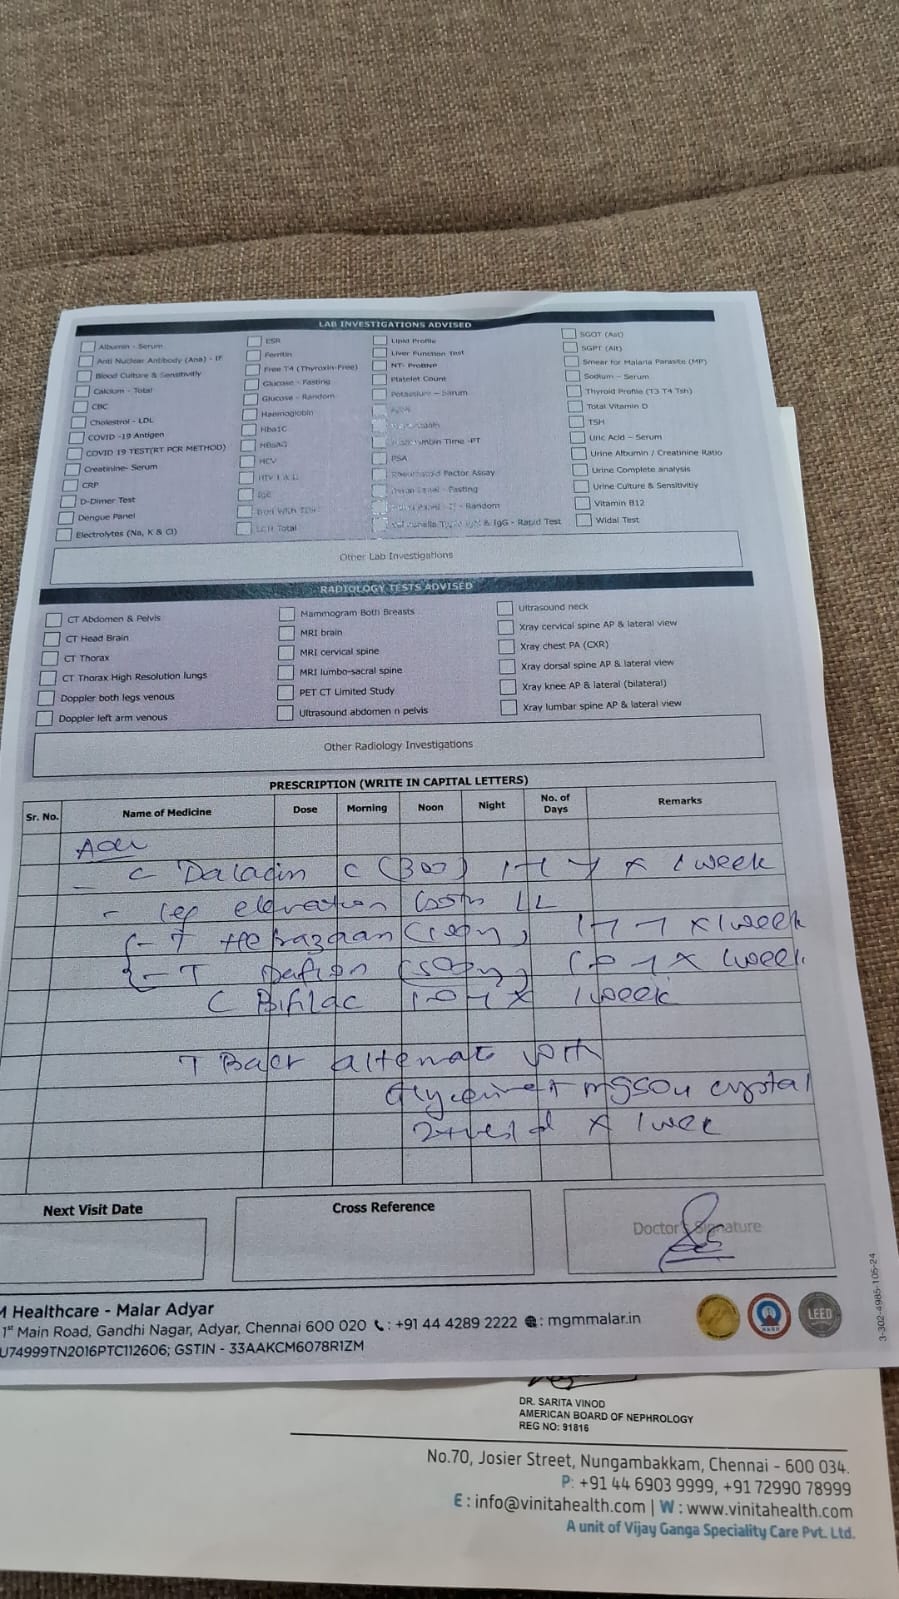 LAB INVESTIGATIONS ADVISED
Albumin - Serum
Anti Nuclear Antibody (Ana) - IF
Blood Culture & Sensitivity
Calcium - Total
CBC
Cholestrol - LDL
COVID -19 Antigen
COVID 19 TEST(RT PCR METHOD)
Creatinine- Serum
CRP
D-Dimer Test
Dengue Panel
Electrolytes (Na, K & Cl)
ESR
Ferritin
Free T4 (Thyroxin-Free)
Glucose - Fasting
Glucose - Random
Haemoglobin
Hba1C
HBsAG
HCV
IgE
Total
Lipid Profile
Liver Function Test
NT- ProBNP
Platelet Count
Potassium - Serum
Time -PT
PSA
Factor Assay
- Fasting
- Random
& IgG - Rapid Test
SGOT (Ast)
SGPT (Alt)
Smear for Malaria Parasite (MP)
Sodium - Serum
Thyroid Profile (T3 T4 Tsh)
Total Vitamin D
TSH
Uric Acid - Serum
Urine Albumin / Creatinine Ratio
Urine Complete analysis
Urine Culture & Sensitivity
Vitamin B12
Widal Test
Other Lab Investigations
RADIOLOGY TESTS ADVISED
CT Abdomen & Pelvis
CT Head Brain
CT Thorax
CT Thorax High Resolution lungs
Doppler both legs venous
Doppler left arm venous
Mammogram Both Breasts
MRI brain
MRI cervical spine
MRI lumbo-sacral spine
PET CT Limited Study
Ultrasound abdomen n pelvis
Ultrasound neck
Xray cervical spine AP & lateral view
Xray chest PA (CXR)
Xray dorsal spine AP & lateral view
Xray knee AP & lateral (bilateral)
Xray lumbar spine AP & lateral view
Other Radiology Investigations
PRESCRIPTION (WRITE IN CAPITAL LETTERS)
Sr. No. Name of Medicine Dose Morning Noon Night No. of Days Remarks
- C Dalacin C (300) x 1 week
- leg elevation both LL
- T x 1 week
- T x 1 week
C Bifilac 1-0-1 x 1 week
T Bact alternate with
Glycerine + mgso4 crystal
x 1 week
Next Visit Date
Cross Reference
Doctor's Signature
Healthcare - Malar Adyar
1st Main Road, Gandhi Nagar, Adyar, Chennai 600 020 : +91 44 4289 2222 : mgmmalar.in
U74999TN2016PTC112606; GSTIN - 33AAKCM6078R1ZM
LEED
3-302-4985-105-24
DR. SARITA VINOD
AMERICAN BOARD OF NEPHROLOGY
REG NO: 91816
No.70, Josier Street, Nungambakkam, Chennai - 600 034.
P: +91 44 6903 9999, +91 72990 78999
E : info@vinitahealth.com | W : www.vinitahealth.com
A unit of Vijay Ganga Speciality Care Pvt. Ltd.